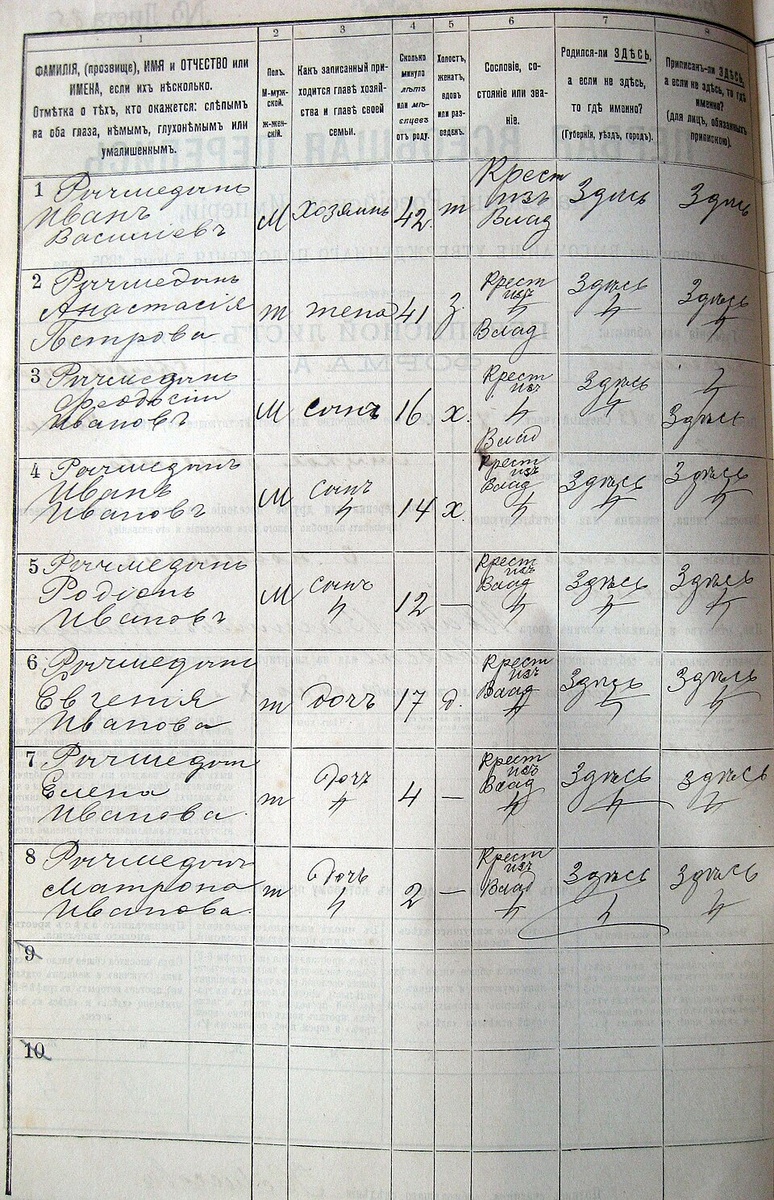 1
2
3
4
5
6
7
8
ФАМИЛІЯ, (прозвище), ИМЯ и ОТЧЕСТВО или
ИМЕНА, если ихъ нѣсколько.
Отмѣтка о тѣхъ, кто окажется: слѣпымъ
на оба глаза, нѣмымъ, глухонѣмымъ или
умалишеннымъ.
Полъ.
М-муж-
ской.
ж-жен-
скій.
Какъ записанный при-
ходится главѣ хозяй-
ства и главѣ своей
семьи.
Сколько
минуло
лѣтъ
или мѣ-
сяцевъ
отъ роду.
Холостъ,
женатъ,
вдовъ
или раз-
веденъ.
Сословіе, со-
стояніе или зва-
ніе.
Родился-ли ЗДѢСЬ,
а если не здѣсь,
то гдѣ именно?
(Губернія, уѣздъ, городъ).
Приписанъ-ли ЗДѢСЬ,
а если не здѣсь, то гдѣ
именно?
(для лицъ, обязанныхъ
припискою).
1
Иванъ
Васильевъ
М Хозяинъ 42 ж
Крест
изъ
Влад
Здѣсь Здѣсь
2
Анастасія
Петрова
ж жена 41 з.
Крест
изъ
Влад
Здѣсь Здѣсь
3
Ивановъ
М сынъ 16 х.
Крест
изъ
Влад
Здѣсь Здѣсь
4
Иванъ
Ивановъ
М сынъ 14 х.
Крест
изъ
Влад
Здѣсь Здѣсь
5
Родіонъ
Ивановъ
М сынъ 12 —
Крест
изъ
Влад
Здѣсь Здѣсь
6
Евгенія
Иванова
ж дочь 17 д.
Крест
изъ
Влад
Здѣсь Здѣсь
7
Елена
Иванова
ж дочь 4 —
Крест
изъ
Влад
Здѣсь Здѣсь
8
Матрона
Иванова
ж дочь 2 —
Крест
изъ
Влад
Здѣсь Здѣсь
9
10